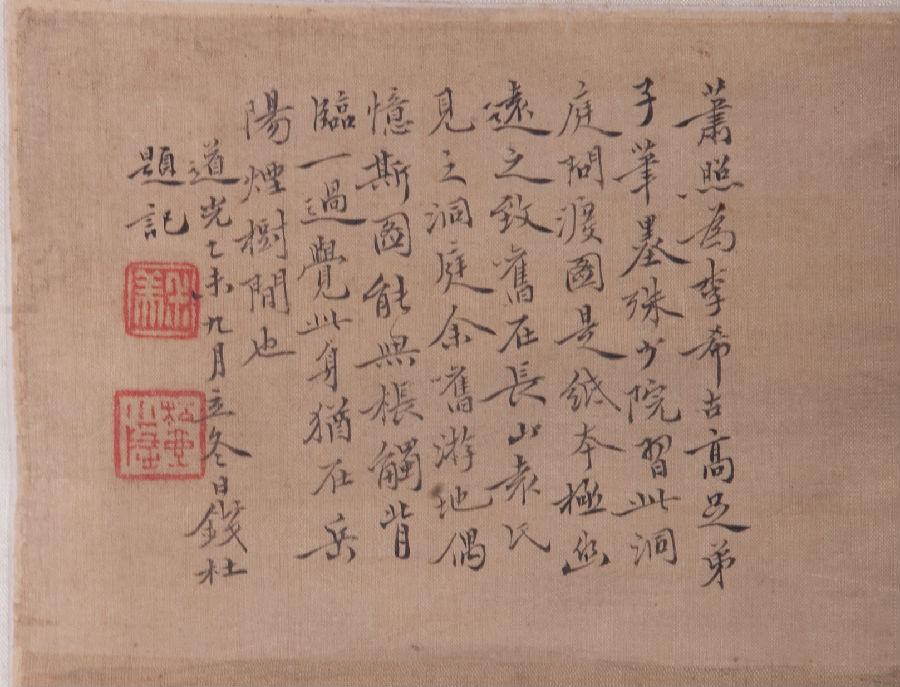 蕭照為李希古高足弟
子筆墨殊少院習此洞
庭問渡圖是紙本極幽
遠之致舊在長山袁氏
見之洞庭余舊游地偶
憶斯圖能無棖觸背
臨一過覺此身猶在岳
陽煙樹間也
道光乙未九月立冬日錢杜
題記